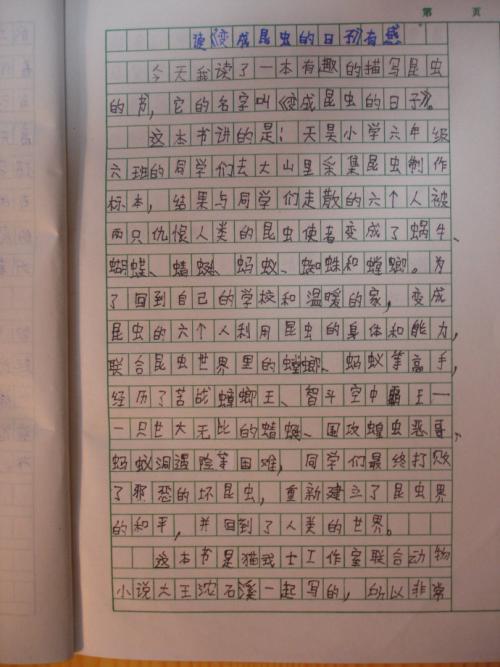 第 页
读《变成昆虫的日子》有感
今天我读了一本有趣的描写昆虫
的书，它的名字叫《变成昆虫的日子》。
这本书讲的是：天昊小学六年级
六班的同学们去大山里采集昆虫制作
标本，结果与同学们走散的六个人被
两只仇恨人类的昆虫使者变成了蜗牛、
蝴蝶、蜻蜓、蚂蚁、蜘蛛和螳螂。为
了回到自己的学校和温暖的家，变成
昆虫的六个人利用昆虫的身体和能力，
联合昆虫世界里的蟑螂、蚂蚁等高手，
经历了苦战蟑螂王、智斗空中霸王一
一只世大无比的蜻蜓、围攻蝗虫恶
蚂蚁洞遇险等困难，同学们最终打败
了邪恶的坏昆虫，重新建立了昆虫界
的和平，并回到了人类的世界。
这本书是猫武士工作室联合动物
小说大王沈石溪一起写的，所以非常